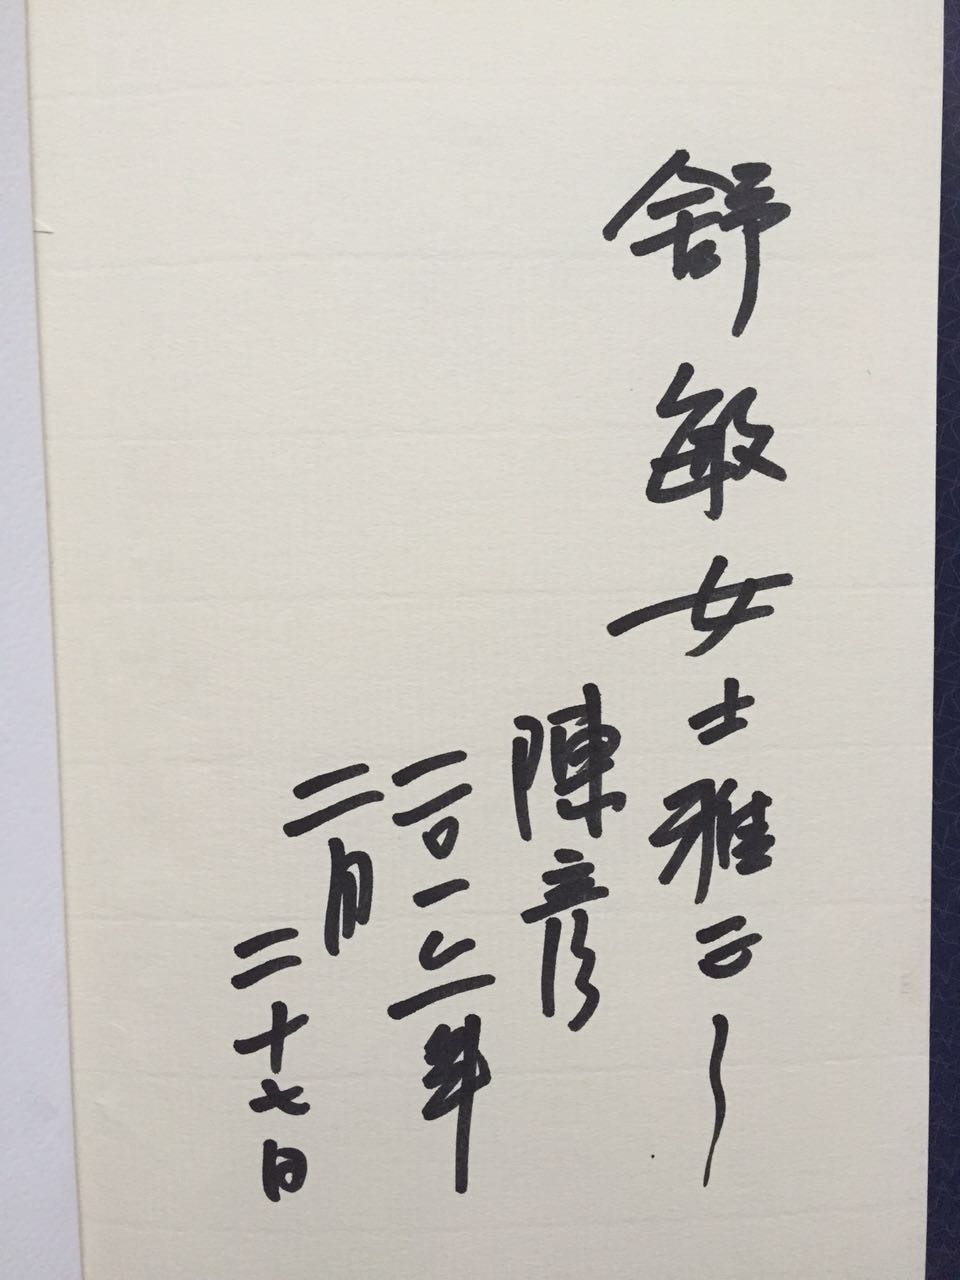 舒敏女士雅正
陳彦
二〇一年
二月
二十七日